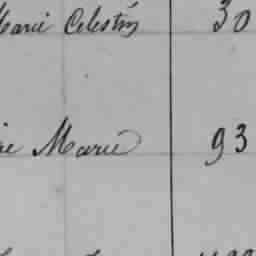 Marie Celestin 30
Marie 93